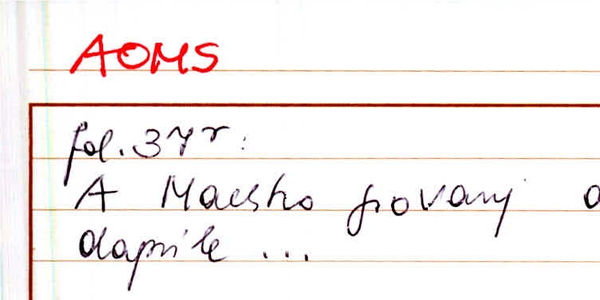 AOMS
fol. 37r:
A Maestro giovanj
daprile ...